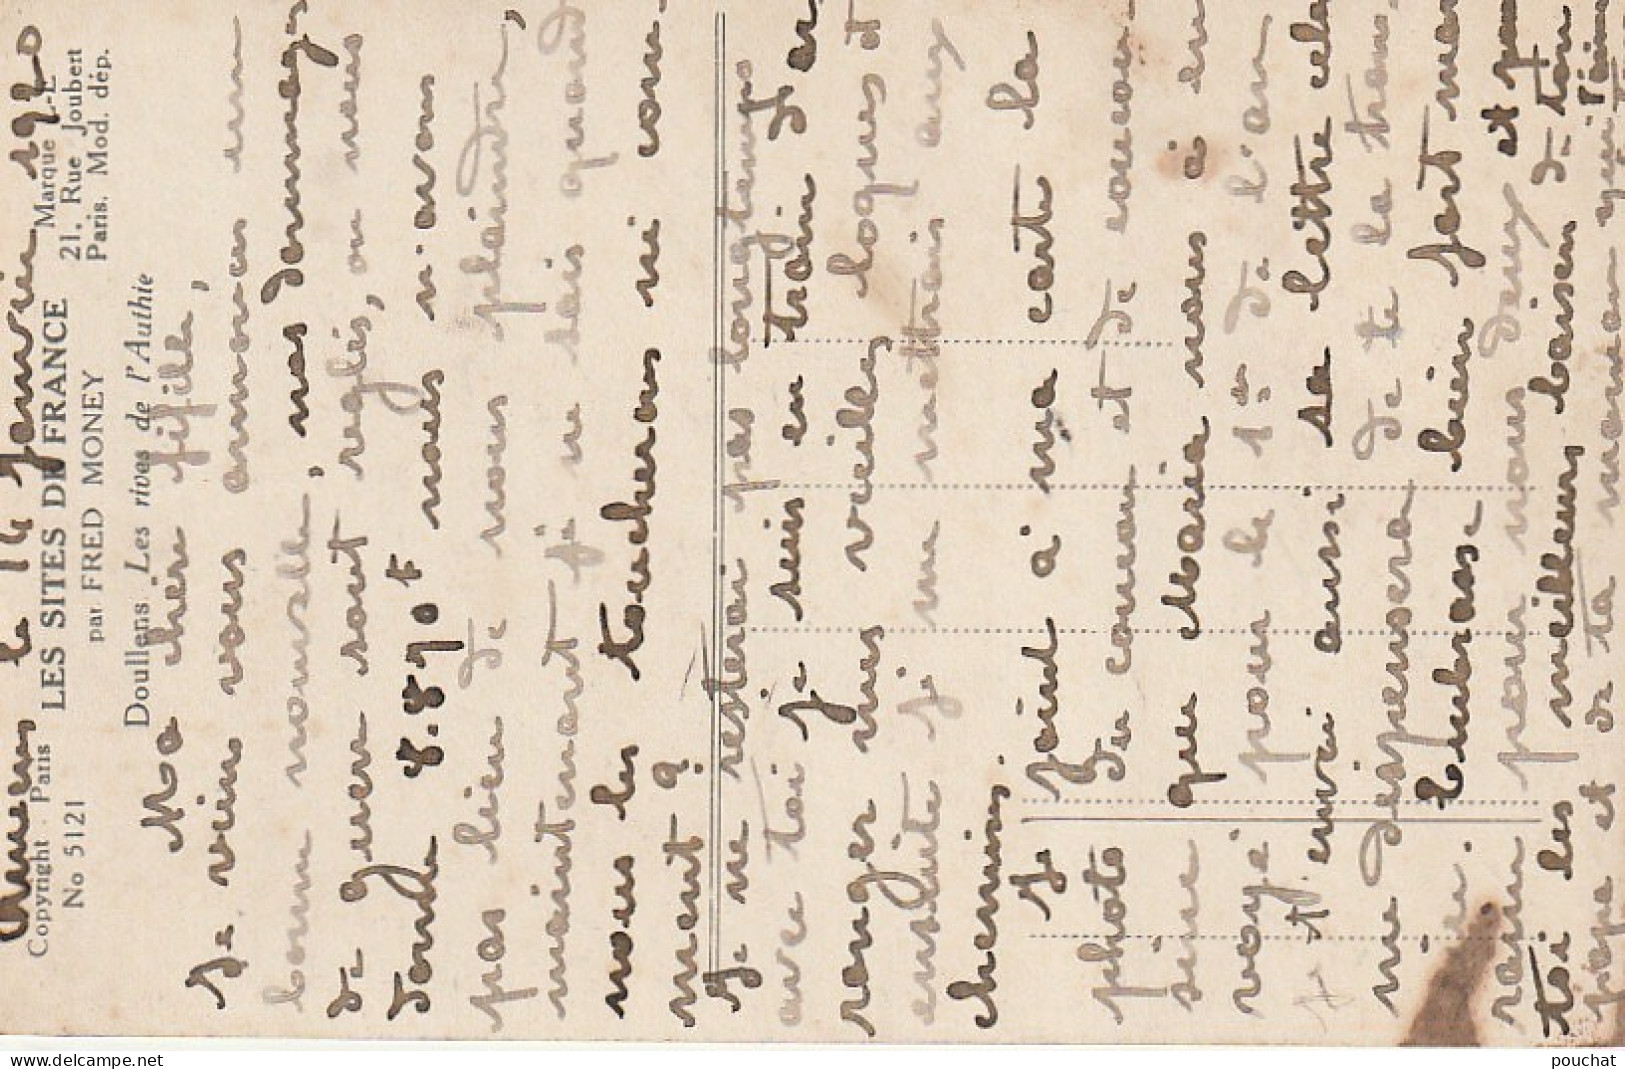 Amiens le 14 Janvier 1920
Copyright. Paris LES SITES DE FRANCE Marque L-E
No 5121 par FRED MONEY 21, Rue Joubert
Paris. Mod. dép.
Doullens Les rives de l'Authie
Ma chère fifille,
Je viens vous annoncer une
bonne nouvelle, nos dommages
de guerre sont réglés, on nous
donne 8.890f nous n'avons
pas lieu de nous plaindre,
maintenant je ne sais quand
nous les toucherons ni com-
ment ?
Je ne resterai pas longtemps
avec toi je suis en train d'ar-
ranger mes vieilles loques et
ensuite je me mettrais aux
chemins.
Je joint à ma carte la
photo du cousin et de cousi-
sine que Maria nous a en-
voyé pour le 1er de l'an
je t'envoi aussi sa lettre cela
me dispensera de te la trans-
Embrasse bien fort mon
pour nous deux et pour
toi les meilleurs baisers de ton
papa et de ta maman qui t'aime
pouchat